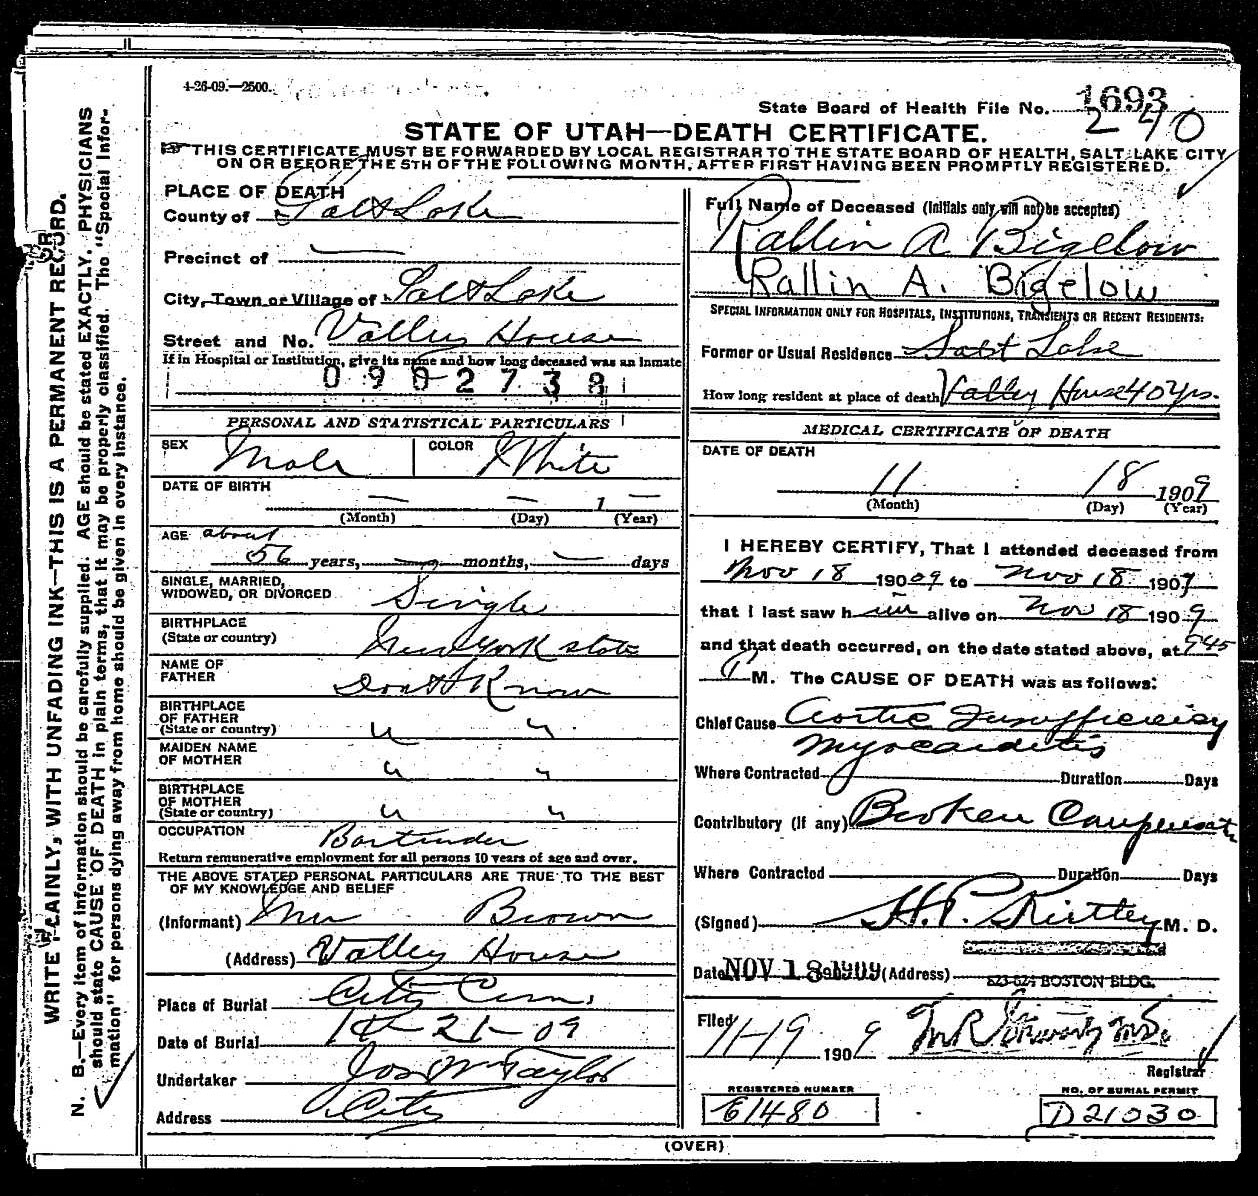 4-26-09.—2500.
State Board of Health File No. 1693
240
STATE OF UTAH—DEATH CERTIFICATE.
THIS CERTIFICATE MUST BE FORWARDED BY LOCAL REGISTRAR TO THE STATE BOARD OF HEALTH, SALT LAKE CITY
ON OR BEFORE THE 5TH OF THE FOLLOWING MONTH, AFTER FIRST HAVING BEEN PROMPTLY REGISTERED.
PLACE OF DEATH
County of Salt Lake
Precinct of —
City, Town or Village of Salt Lake
Street and No. Valley House
If in Hospital or Institution, give its name and how long deceased was an inmate
0902738
PERSONAL AND STATISTICAL PARTICULARS
SEX Male COLOR White
DATE OF BIRTH
— — 1 —
(Month) (Day) (Year)
AGE about
56 years, — months, — days
SINGLE, MARRIED,
WIDOWED, OR DIVORCED Single
BIRTHPLACE
(State or country) New York state
NAME OF
FATHER Dont Know
BIRTHPLACE
OF FATHER
(State or country) " "
MAIDEN NAME
OF MOTHER " "
BIRTHPLACE
OF MOTHER
(State or country) " "
OCCUPATION Bartender
Return remunerative employment for all persons 10 years of age and over.
THE ABOVE STATED PERSONAL PARTICULARS ARE TRUE TO THE BEST
OF MY KNOWLEDGE AND BELIEF
(Informant) Brown
(Address) Valley House
Place of Burial City Cem.
Date of Burial 21-09
Undertaker Jos Wm Taylor
Address City
Full Name of Deceased (Initials only will not be accepted)
Rallin A Bigelow
Rallin A. Bigelow
SPECIAL INFORMATION ONLY FOR HOSPITALS, INSTITUTIONS, TRANSIENTS OR RECENT RESIDENTS:
Former or Usual Residence Salt Lake
How long resident at place of death Valley House 40 yrs.
MEDICAL CERTIFICATE OF DEATH
DATE OF DEATH
11 18 1909
(Month) (Day) (Year)
I HEREBY CERTIFY, That I attended deceased from
Nov 18 19009 to Nov 18 1909
that I last saw him alive on Nov 18 1909
and that death occurred, on the date stated above, at 945
P M. The CAUSE OF DEATH was as follows:
Chief Cause Aortic Insufficiency
Myocarditis
Where Contracted Duration Days
Contributory (if any) Broken Compensation
Where Contracted Duration Days
(Signed) H.P. Kirtley M. D.
Date NOV 18 1909 (Address) 523-524 BOSTON BLDG.
Filed 11-19 1909
Registrar
REGISTERED NUMBER
E1480
NO. OF BURIAL PERMIT
D21030
(OVER)
WRITE PLAINLY, WITH UNFADING INK—THIS IS A PERMANENT RECORD.
N. B.—Every item of information should be carefully supplied. AGE should be stated EXACTLY. PHYSICIANS
should state CAUSE OF DEATH in plain terms, that it may be properly classified. The "Special Infor-
mation" for persons dying away from home should be given in every instance.